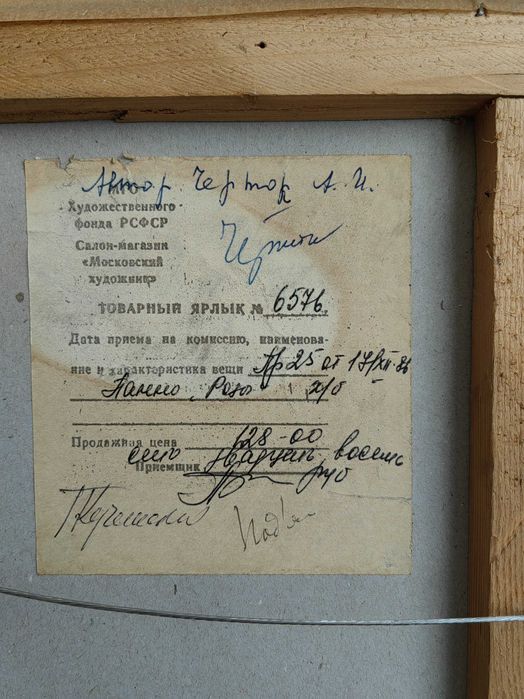 Автор Черток А. И.
Художественного
фонда РСФСР
Салон-магазин
«Московский
художник»
ТОВАРНЫЙ ЯРЛЫК № 6576
Дата приема на комиссию, наименова-
ние и характеристика вещи Пр 25 от 17/XII-86
Панно „Розы" х/б
Продажная цена 128-00
сто двадцать восемь
Приемщик руб